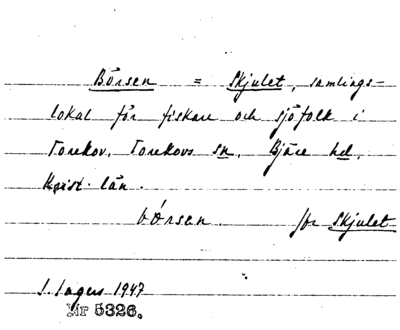 Börsen = Skjulet, samlings-
lokal för fiskare och sjöfolk i
Torekov, Torekovs sn, Bjäre hd,
Krist. län.
börsen. for Skjulet
S. Ingers 1947
Nr 5326.